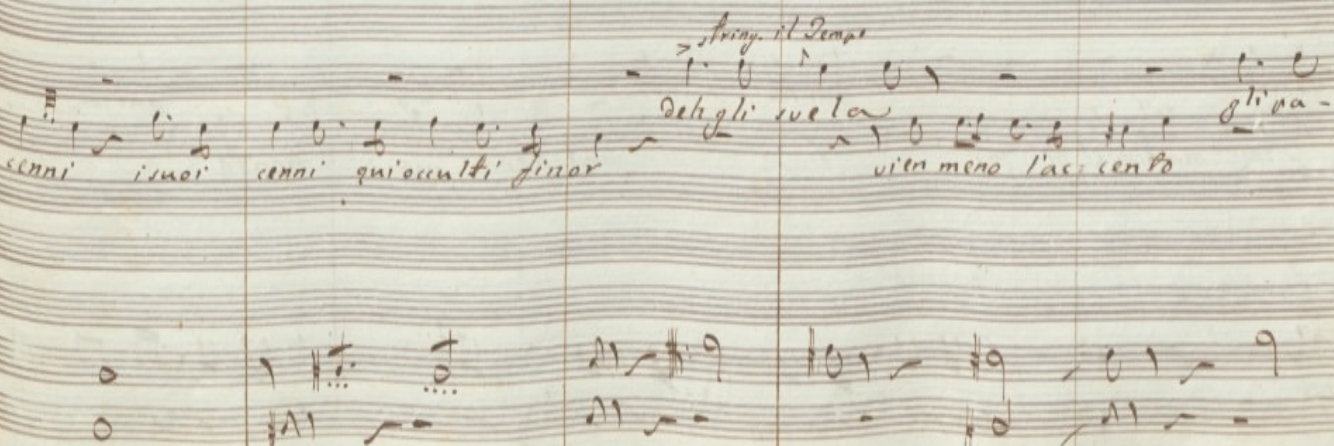 string. il Tempo
deh gli svela
gli pa-
cenni i suoi cenni qui occulti finor vien meno l'ac cento